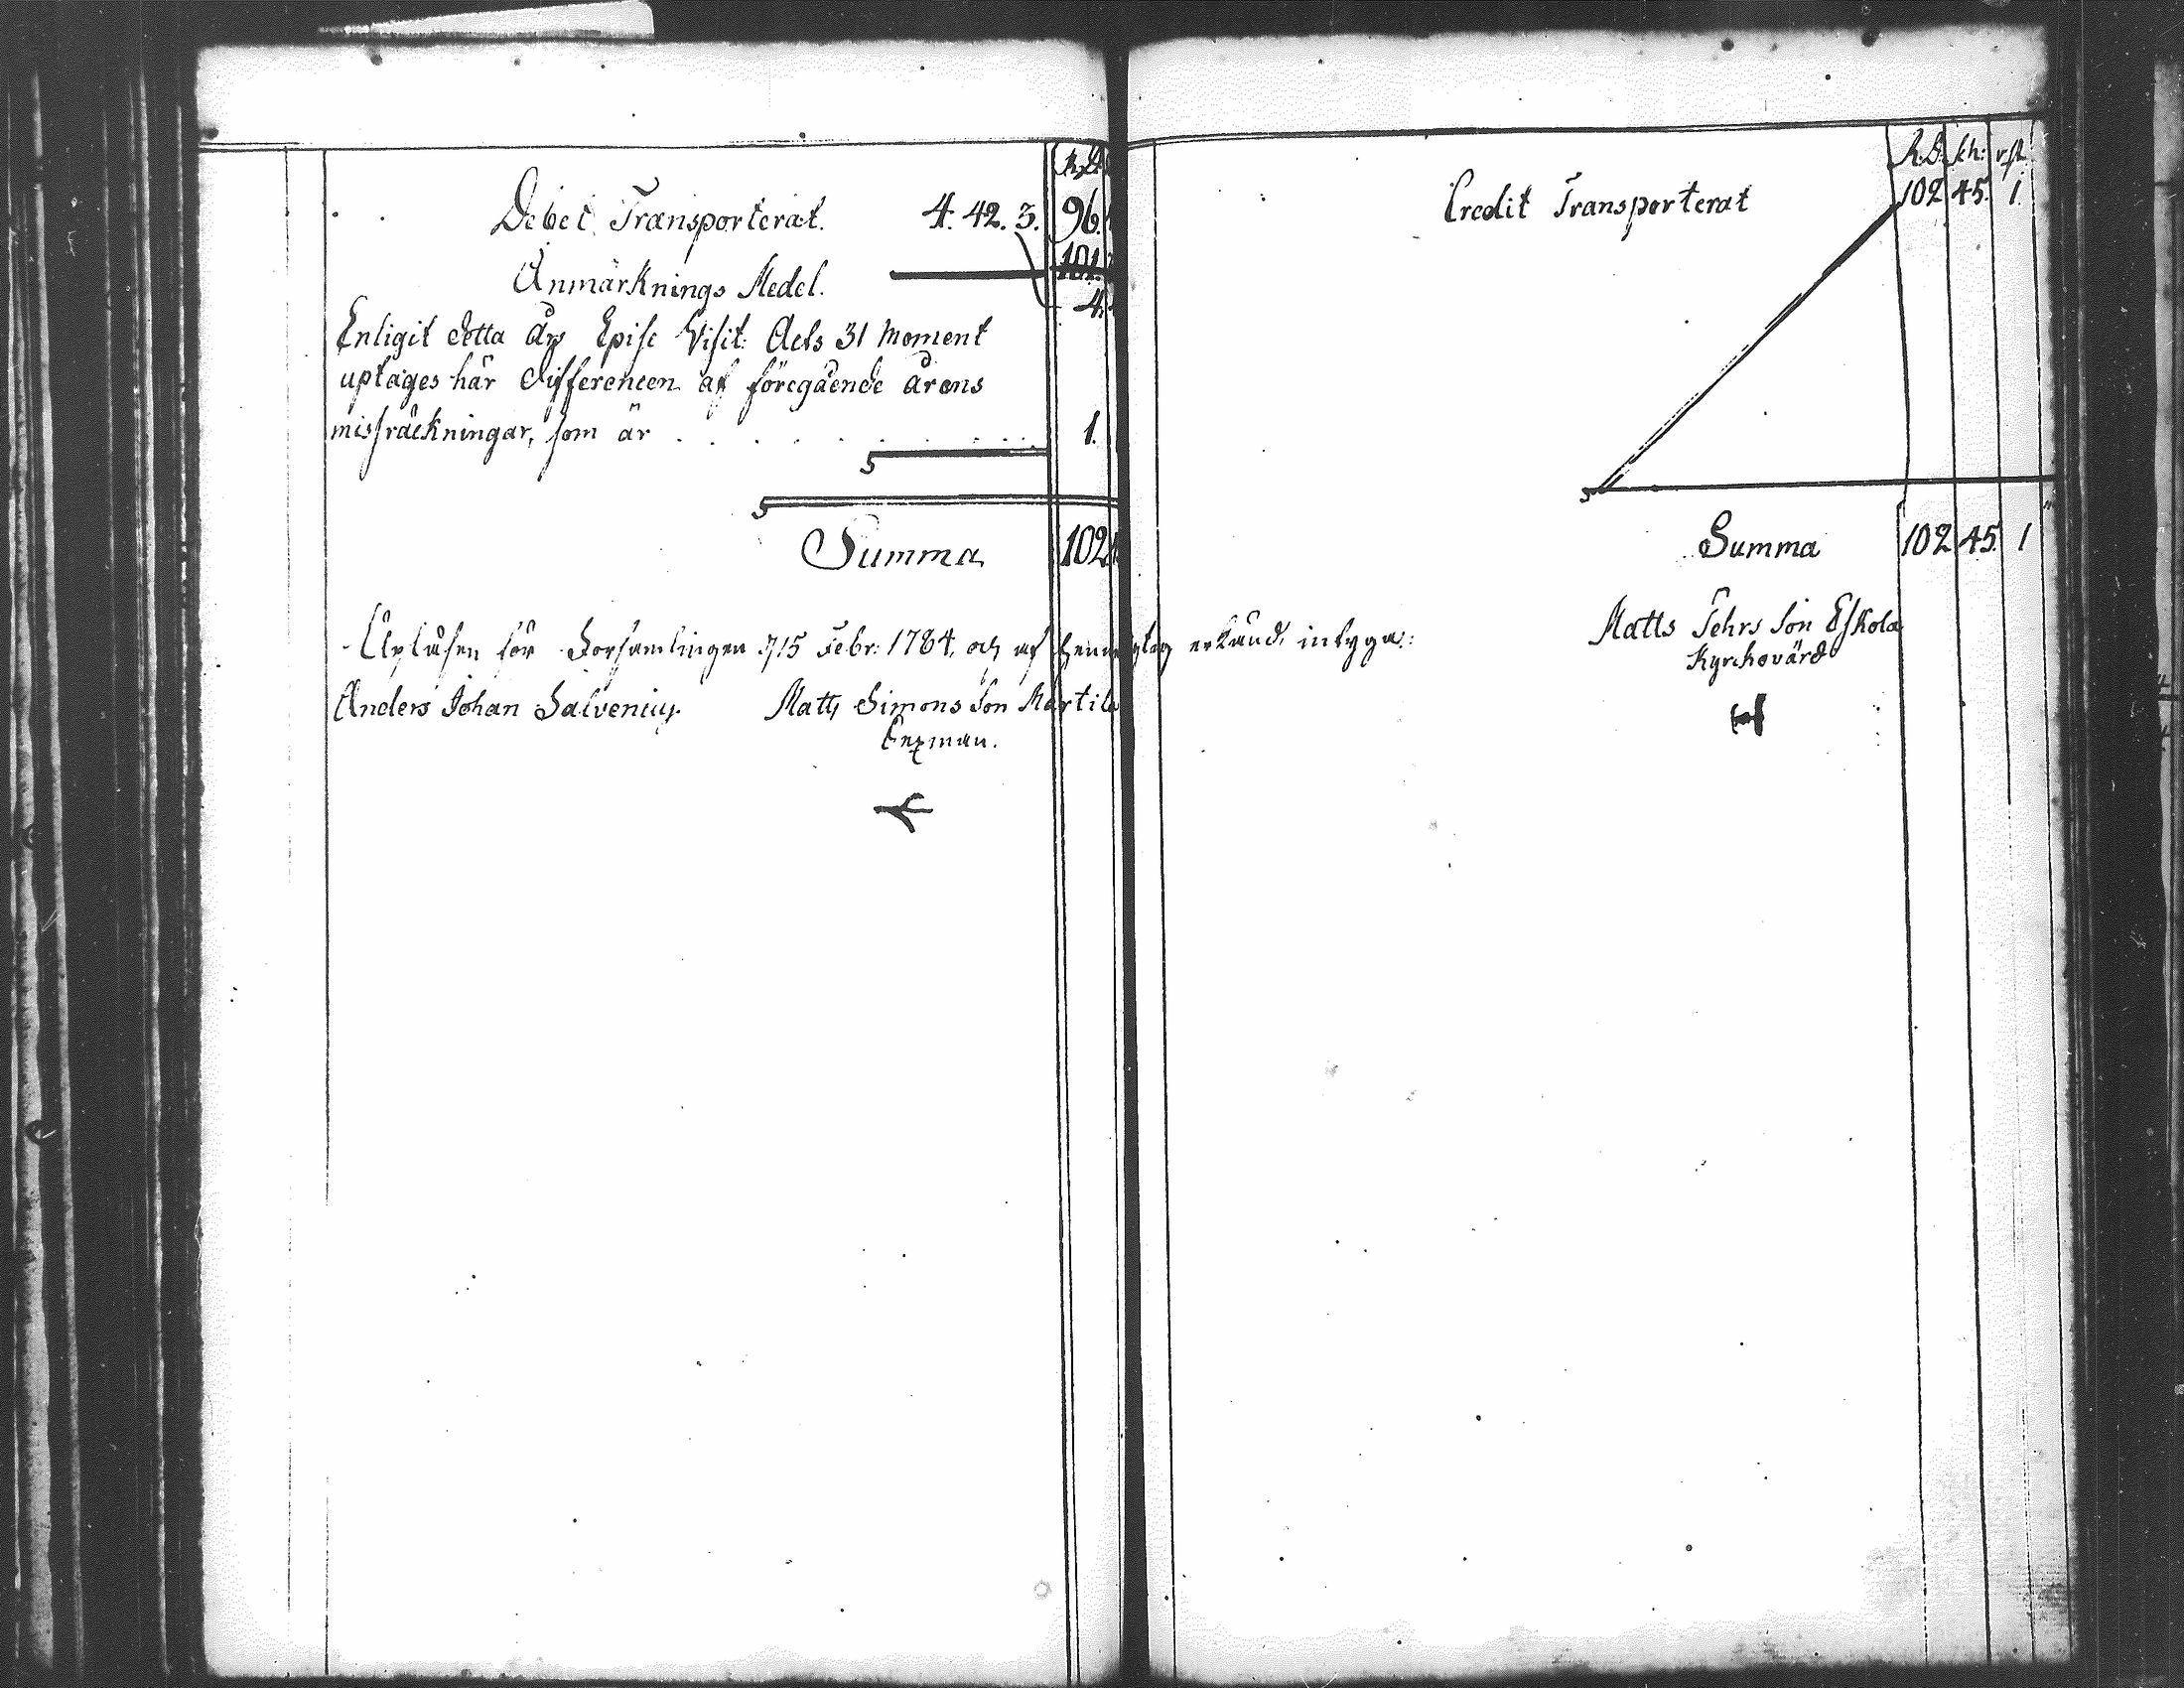 R:D:
Debet Transporterat. 4. 42. 3. 96.
101.
Anmärknings Medel.
4.
Enligit detta års Episc Visit: Acts 31 Moment
uptages här differencen af föregående årens
missräckningar, som är . . . . . . . . 1.
Summa 102
Upläsen för Församlingen d 15 Febr: 1784, och af erkänd, intyga:
Anders Johan Salvenius. Matts Simons Son Martila
Sexman.
R:D: sch: rst.
Credit Transporterat 102 45. 1.
Summa 102 45. 1
Matts Jehrs Son Eskola
Kyrckovärd